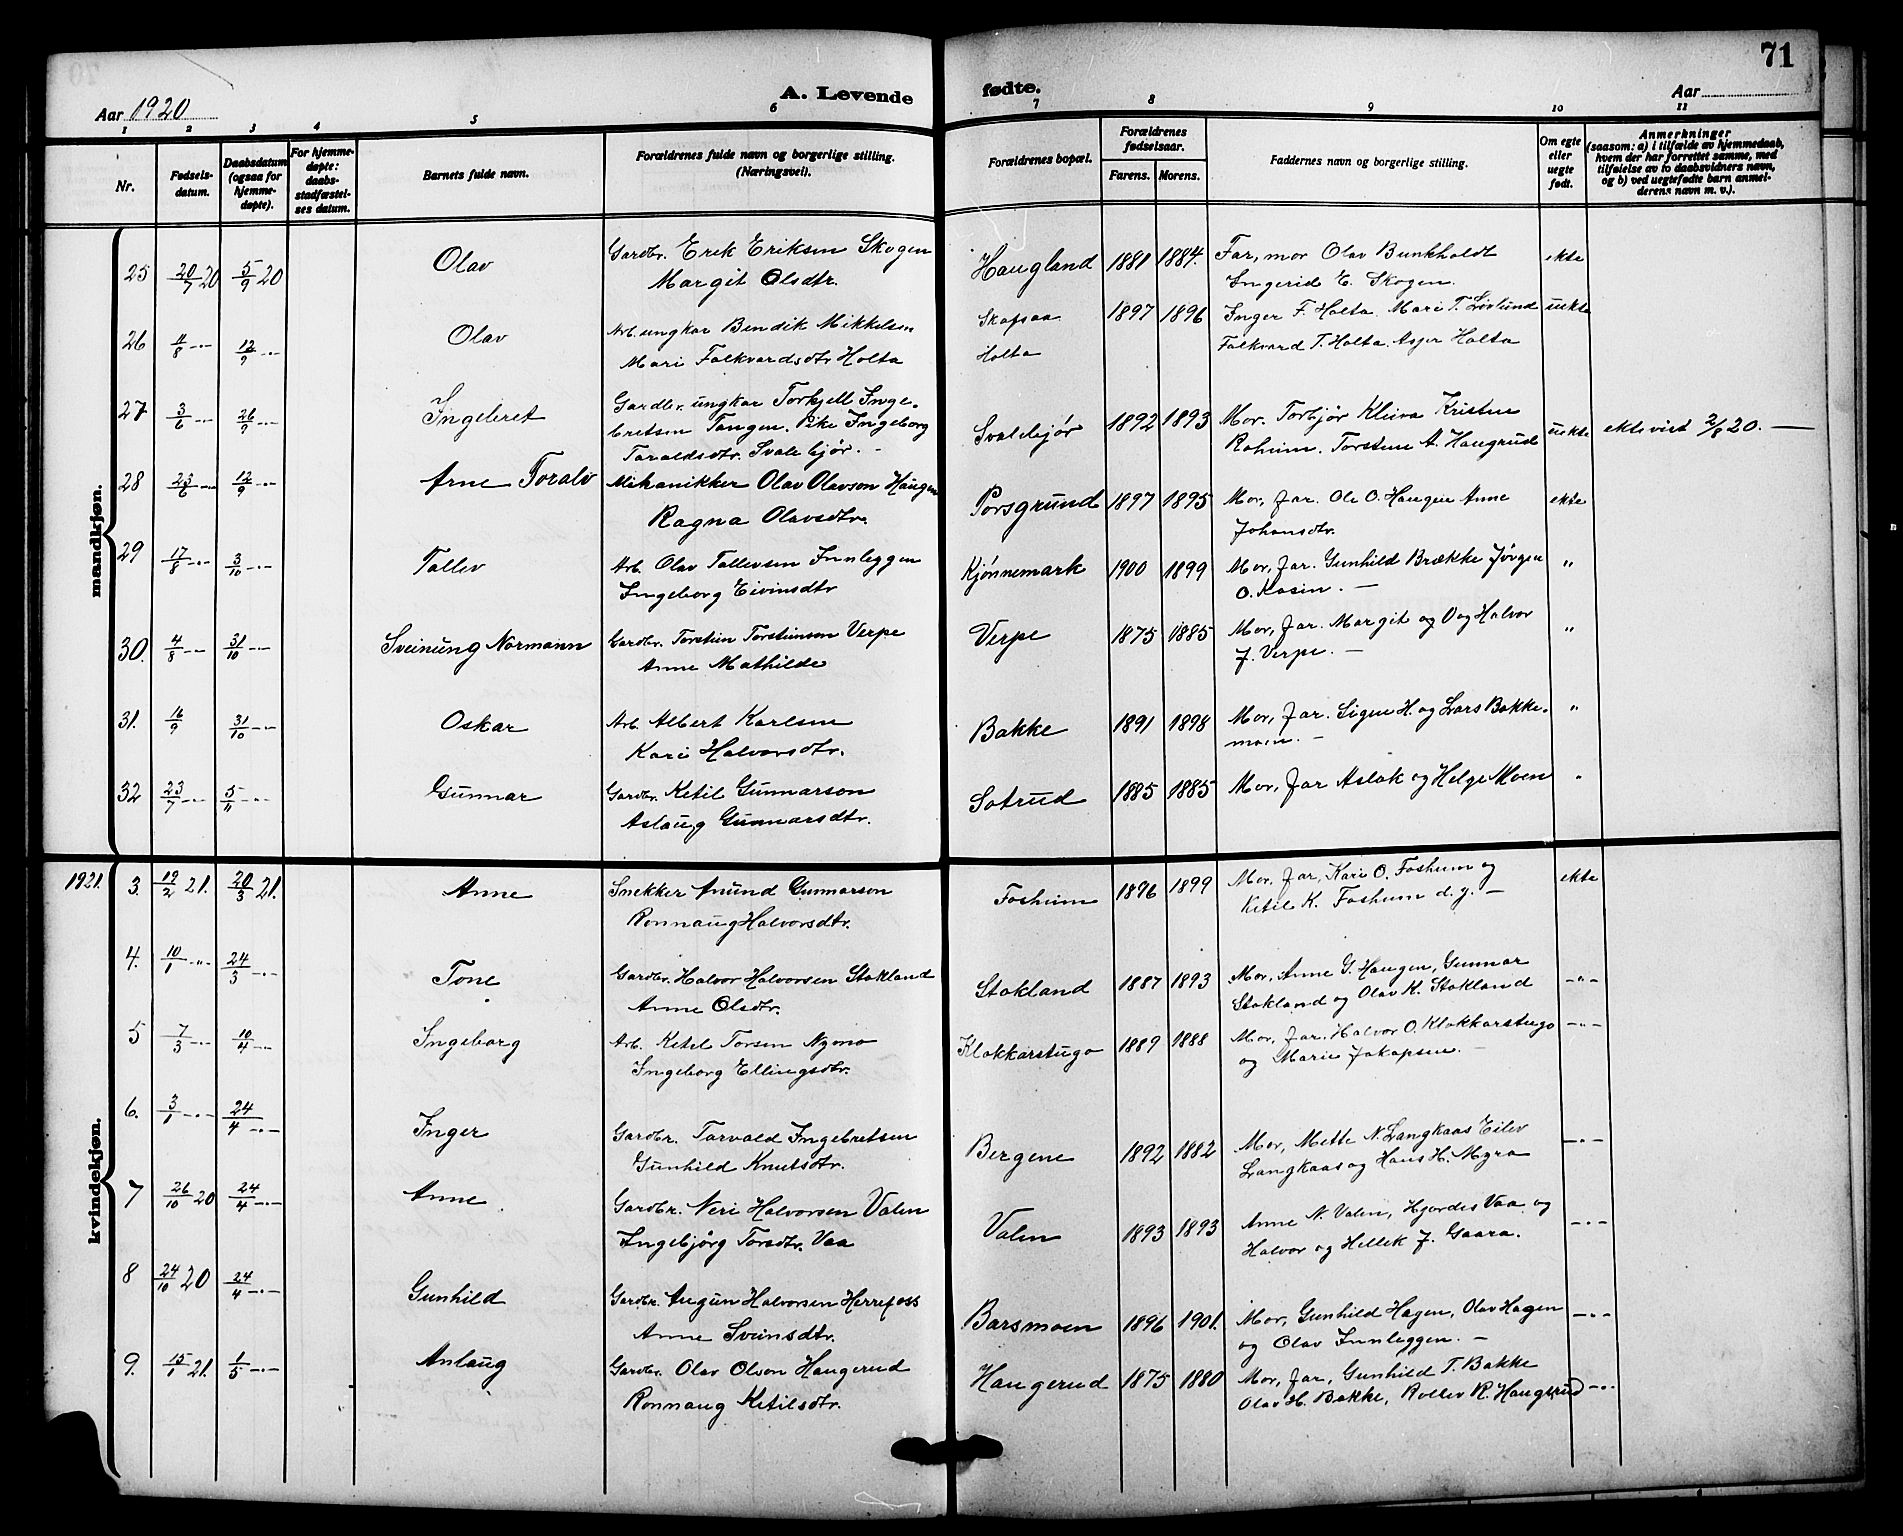 71
Aar 1920
A. Levende
fødte.
Aar
1 2 3 4 5 6 7 8 9 10 11
Nr.
Fødsels-
datum.
Daabsdatum
(ogsaa for
hjemme-
døpte).
For hjemme-
døpte:
daabs-
stadfæstel-
ses datum.
Barnets fulde navn.
Forældrenes fulde navn og borgerlige stilling.
(Næringsvei).
Forældrenes bopæl.
Forældrenes
fødselsaar.
Farens. Morens.
Faddernes navn og borgerlige stilling.
Om egte
eller
uegte
født.
Anmerkninger
(saasom: a) i tilfælde av hjemmedaab,
hvem der har forrettet samme, med
tilføielse av to daabsvidners navn,
og b) ved uegtefødte barn anmel-
derens navn m. v.).
mandkjøn.
25 20/7 20 5/9 20 Olav Gardbr. Erik Eriksen Skogen Haugland 1881 1884. Far, mor Olav Bunkholdt ekte
Margit Olsdtr. Ingerid E. Skogen.
26 11/8 -"- 12/9 -"- Olav Arb. ungkar Bendik Mikkelsen Skafsaa 1897 1896 Inger F. Holta. Mari T. Løvlund uekte
Mari Folkvardsdtr Holta Holta Folkvard T. Holta. Asger Holta
27 3/6 -"- 26/9 -"- Ingebret Gardbr. ungkar Torkjell Inge-
bretsen Tangen. Pike Ingeborg Svalebjør 1892 1893 Mor. Torbjør Kleiva Kristine uekte ektevist 2/8 20. —
Taraldsdtr. Svalebjør. - Roheim. Torstein A. Haugrud
28 23/6 -"- 12/9 -"- Arne Toralv Mekanikker Olav Olavson Haugen Porsgrund 1897 1895 Mor, far. Ole O. Haugen Anne ekte
Ragna Olavsdtr. Johansdtr.
29 17/8 -"- 3/10 -"- Tallev Arb. Olav Tallevsen Innleggen Kjønnemark 1900 1899 Mor, far. Gunhild Brække Jørgen "
Ingeborg Eivinsdtr O. Kasin. —
30. 4/8 -"- 31/10 -"- Sveinung Normann Gardbr. Torstein Torsteinsen Verpe Verpe 1875 1885 Mor, far. Margit og O og Halvor "
Anne Mathilde J. Verpe. —
31. 16/9 31/10 -"- Oskar Arb. Albert Karlsen Bakke 1891 1898 Mor, far. Signe H. og Lars Bakke- "
Kari Halvorsdtr. moen. —
32 23/7 -"- 5/11 -"- Gunnar Gardbr. Ketil Gunnarson Sotrud 1885 1885 Mor, far Aslak og Helge Moen "
Aslaug Gunnarsdtr.
kvindekjøn.
1921. 3. 19/2 21. 20/3 21. Anne Snekker Anund Gunnarson Foshum 1896 1899 Mor, far, Kari O. Foshum og ekte
Ronnaug Halvorsdtr. Ketil K. Foshum d. y. —
4. 10/1 -"- 24/3 -"- Tone Gardbr. Halvor Halvorsen Stokland Stokland 1887 1893 Mor, Anne G. Haugen, Gunnar -"-
Anne Olsdtr. Stokland og Olav K. Stokland
5 7/3 -"- 10/4 -"- Ingeborg Arb. Ketil Torsen Nymo Klokkarstugo 1889 1888 Mor, far. Halvor O. Klokkarstugo -"-
Ingeborg Ellingsdtr. og Marie Jakapsen. —
6. 3/1 -"- 24/4 -"- Inger Gardbr. Tarvald Ingebretsen Bergene 1892 1882 Mor, Mette N. Langkaas Eilev -"-
Gunhild Knutsdtr. Langkaas og Hans H. Myra
7 26/10 20 24/4 -"- Anne Gardbr. Neri Halvorsen Valen Valen 1893 1893 Anne N. Valen, Hjordis Vaa og -"-
Ingebjørg Torsdtr. Vaa Halvor og Hellek J. Gaara.
8 24/10 20 24/4 -"- Gunhild Gardbr. Augun Halvorsen Herrefoss Barsmoen 1896 1901. Mor, Gunhild Hagen, Olav Hagen -"-
Anne Sveinsdtr. og Olav Innleggen. —
9. 15/1 21. 1/5 -"- Anlaug Gardbr. Olav Olson Haugerud Haugerud 1875 1880 Mor, far, Gunhild T. Bakke
Ronnaug Ketilsdtr. Olav H. Bakke, Rollev R. Haugerud -"-